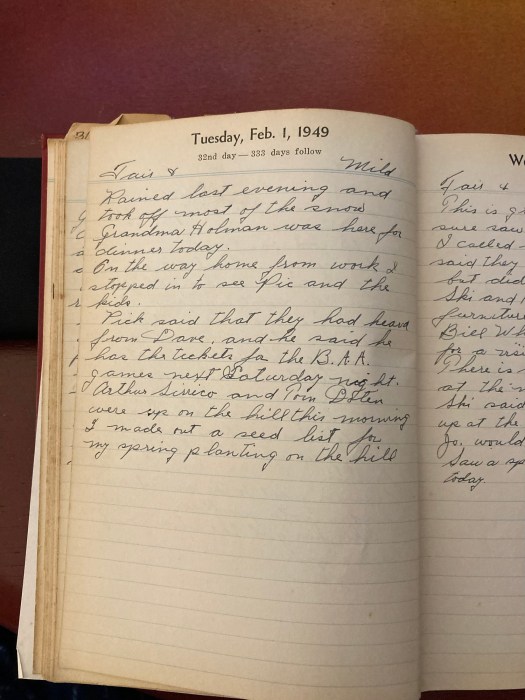 Tuesday, Feb. 1, 1949
32nd day — 333 days follow
Fair & Mild
Rained last evening and
took off most of the snow
Grandma Holman was here for
dinner today.
On the way home from work I
stopped in to see Pic and the
kids.
Pick said that they had heard
from Dave, and he said he
has the tickets for the B.A.A.
games next Saturday night.
Arthur Sirrico and Tom Doten
were up on the hill this morning
I made out a seed list for
my spring planting on the hill
Fair &
This is
sure saw
I called
said they
but did
Ski and
furniture
Bill
for a
There is
at the
Ski said
up at the
Jo. would
Saw a
today.